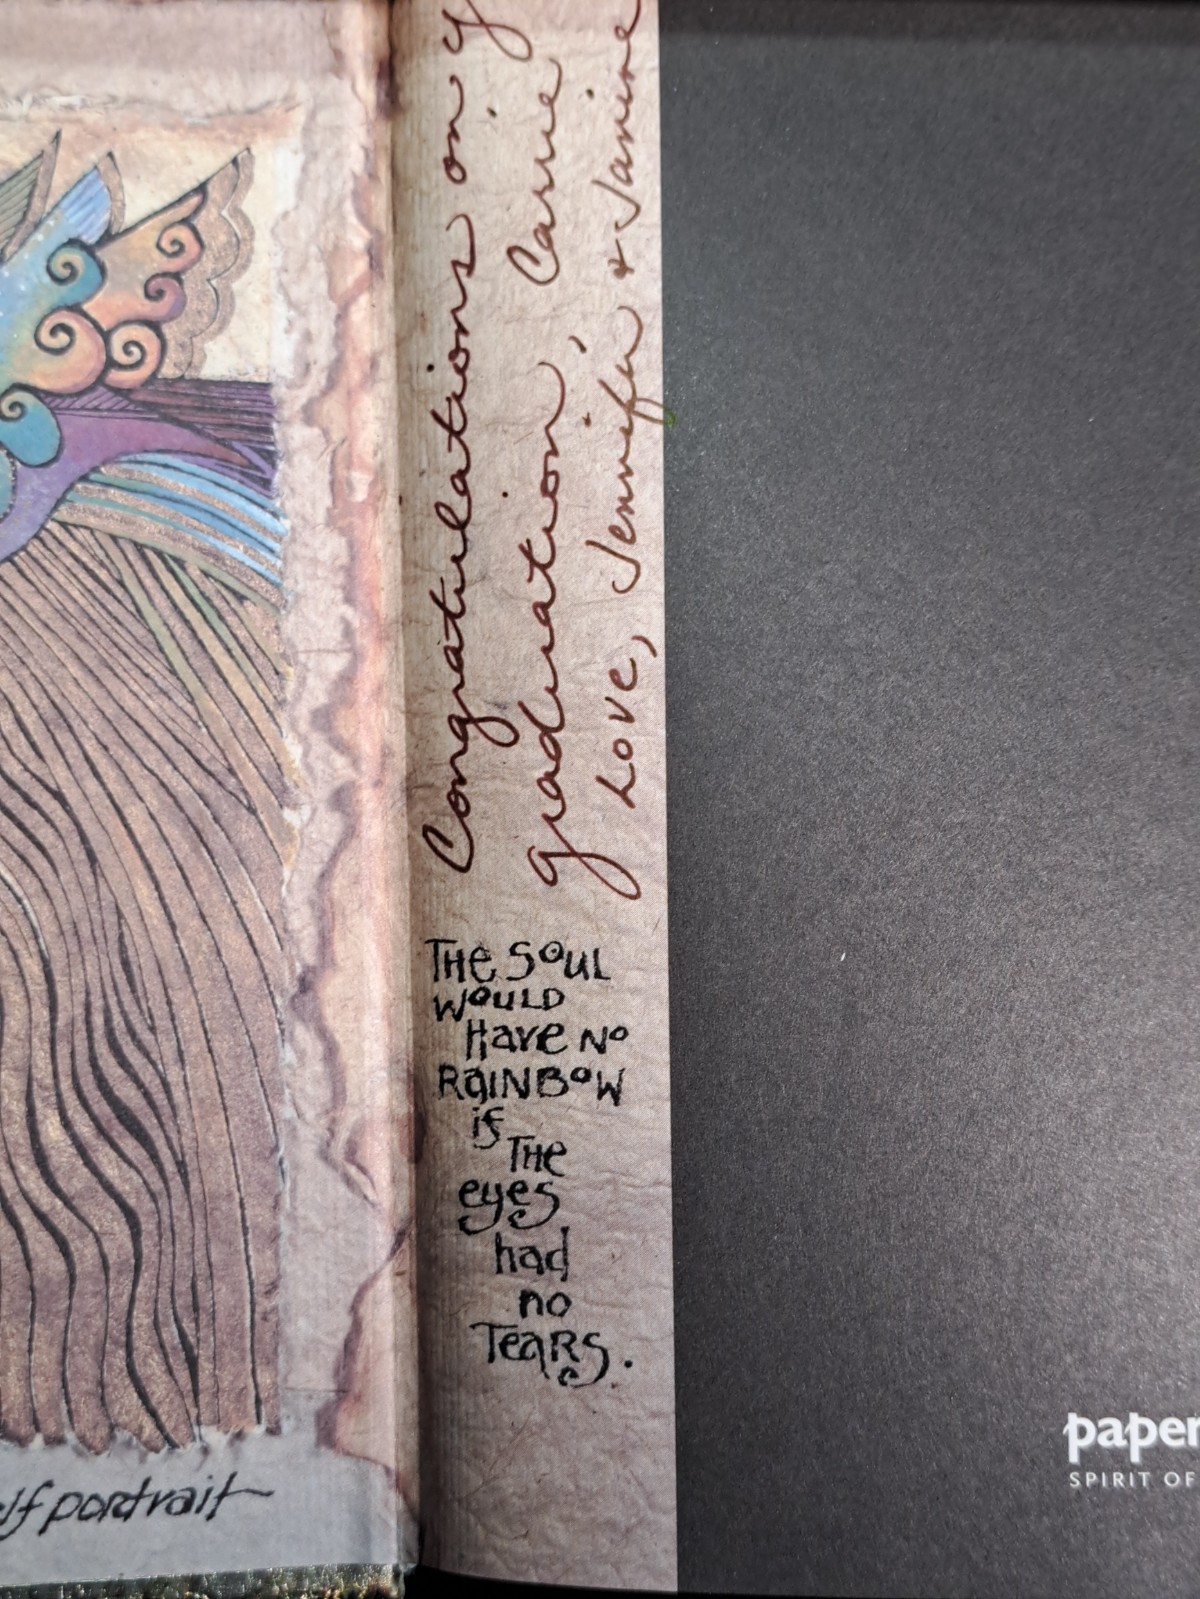 Congratulations on y
graduation, Carrie
Love, Jennifer + Janine
THE SOUL
WOULD
Have NO
RAINBOW
if
THE
eyes
had
no
TEARS.
lf portrait
paper
SPIRIT OF